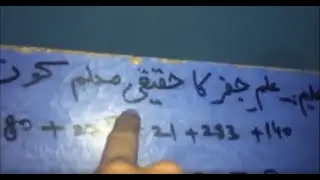 علم جفر کا حقیقی معلم کون
+ 21 + 283 + 140